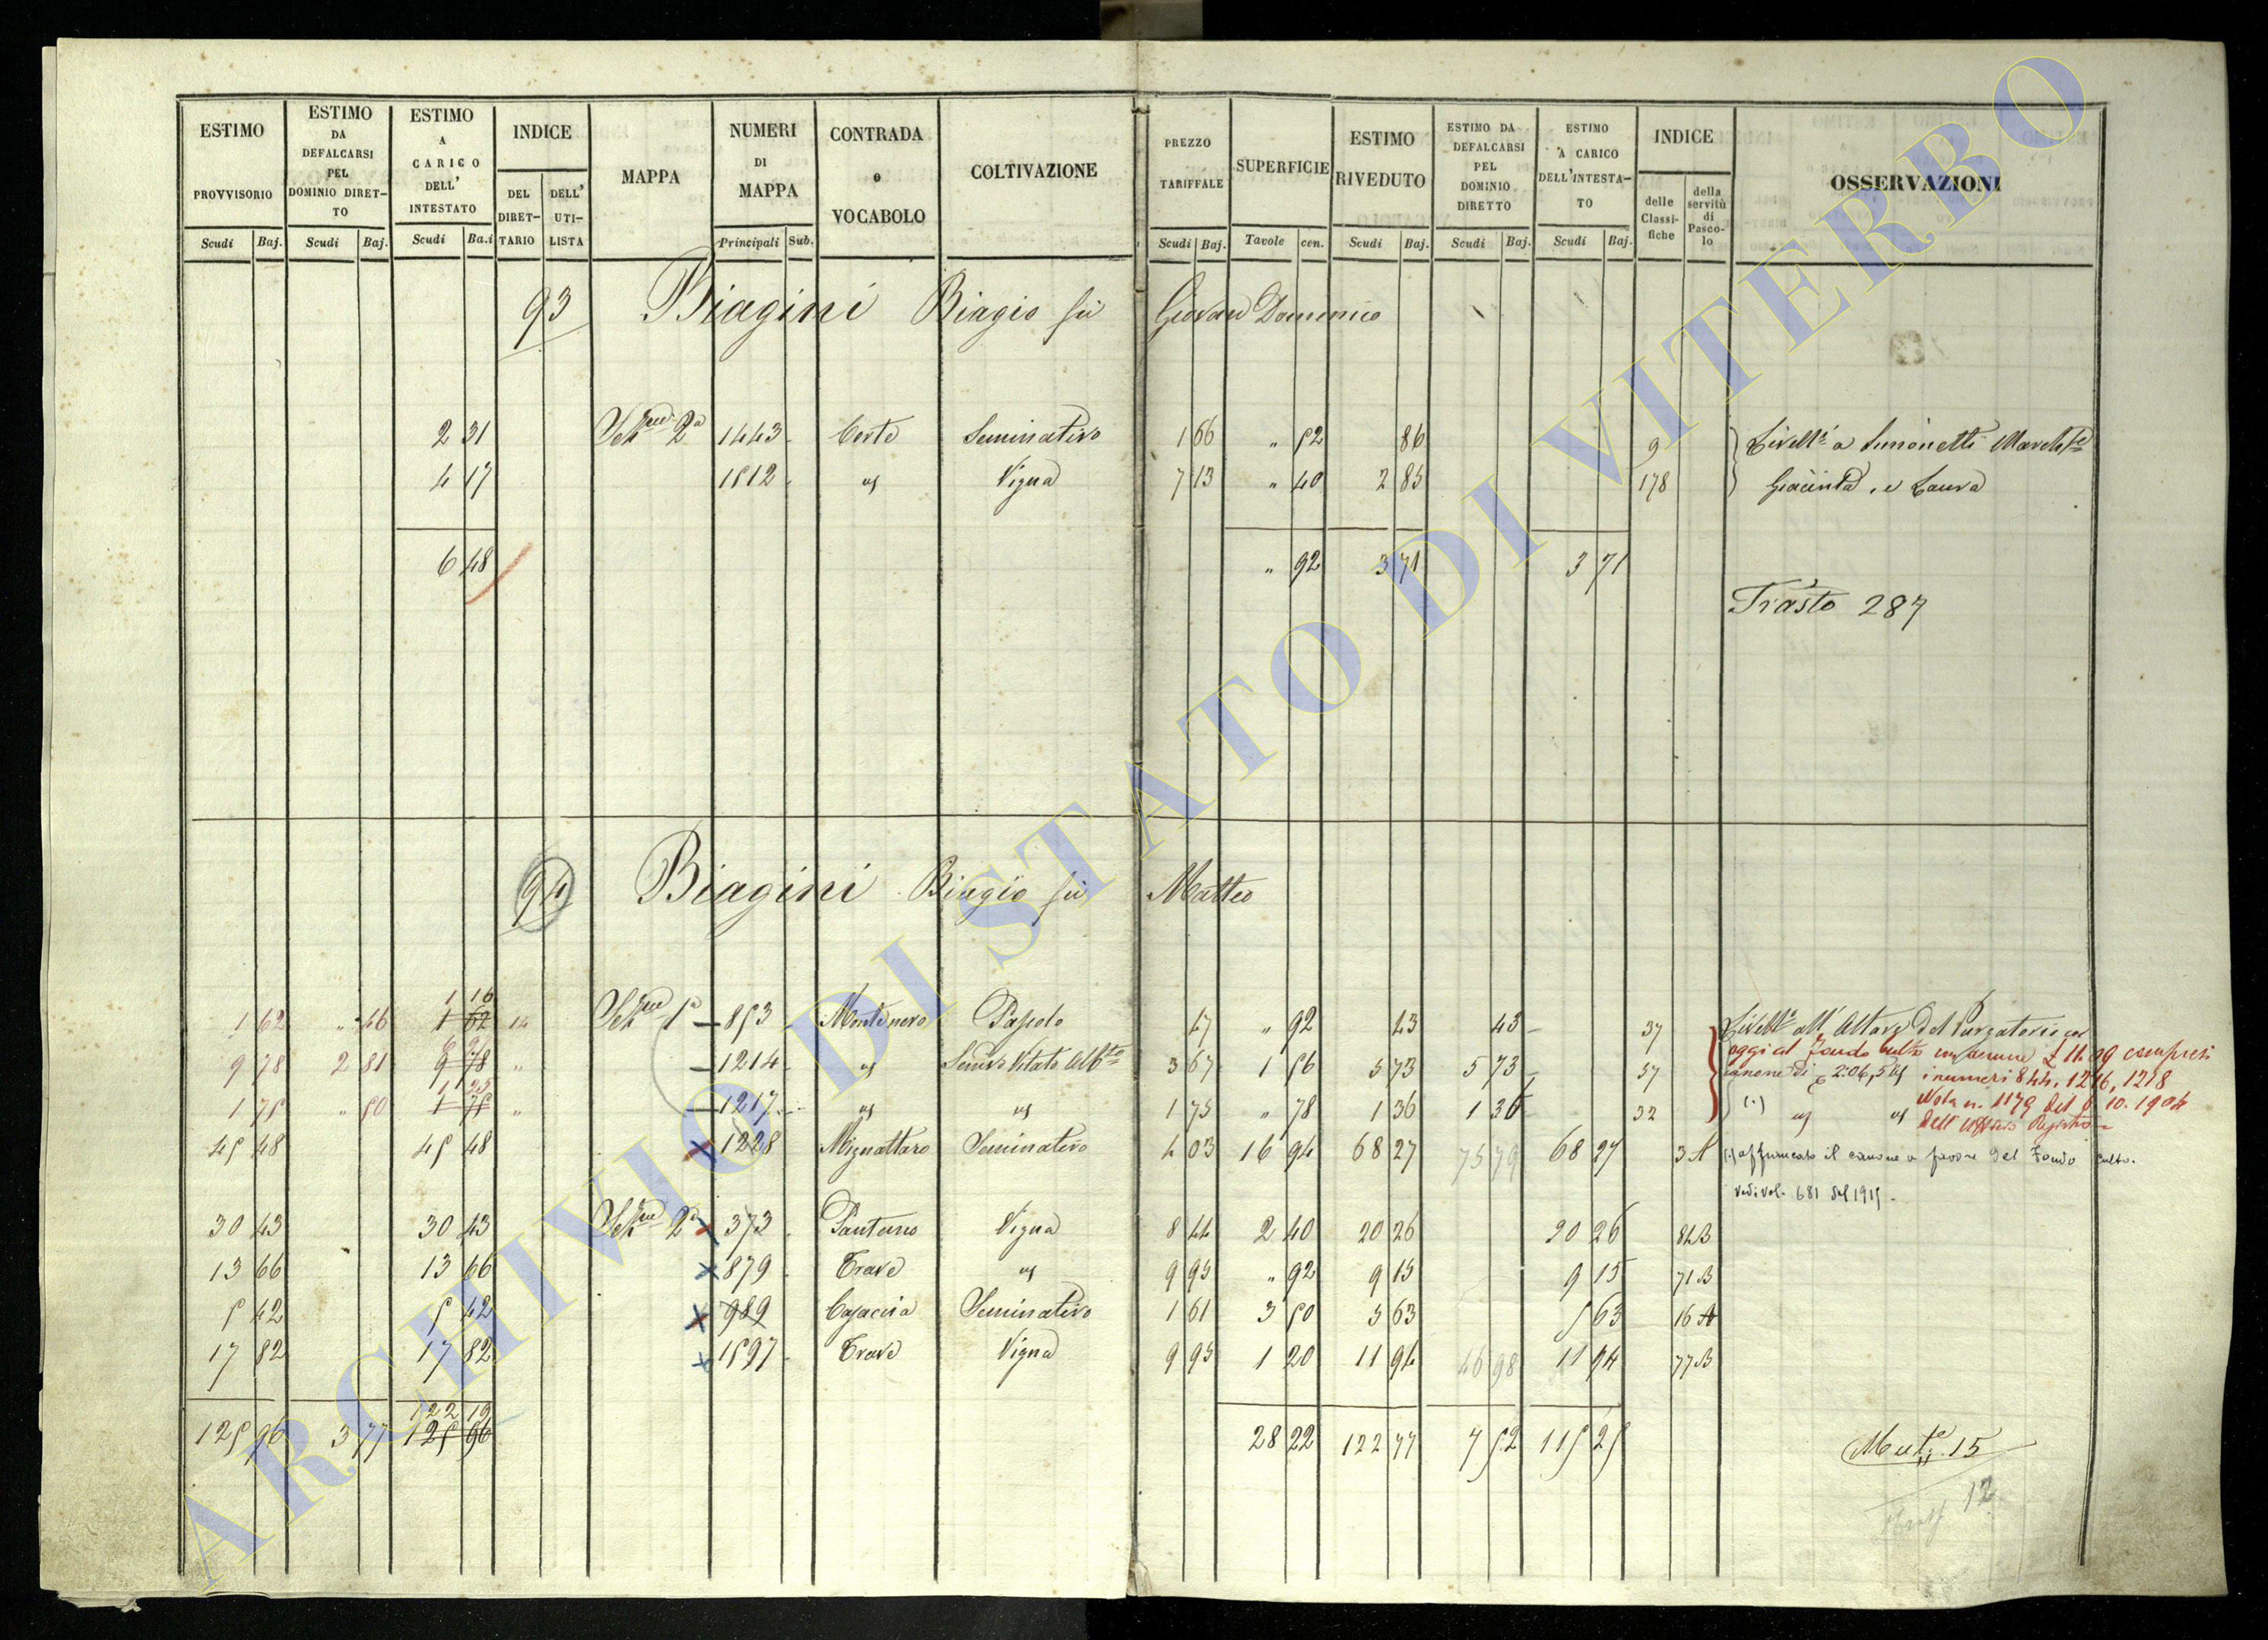 ESTIMO PROVVISORIO Scudi Baj.
ESTIMO DA DEFALCARSI PEL DOMINIO DIRETTO Scudi Baj.
ESTIMO A CARICO DELL' INTESTATO Scudi Ba.i
INDICE DEL DIRETTARIO DELL' UTILISTA
MAPPA
NUMERI DI MAPPA Principali Sub.
CONTRADA o VOCABOLO
COLTIVAZIONE
PREZZO TARIFFALE Scudi Baj.
SUPERFICIE Tavole cen.
ESTIMO RIVEDUTO Scudi Baj.
ESTIMO DA DEFALCARSI PEL DOMINIO DIRETTO Scudi Baj.
ESTIMO A CARICO DELL'INTESTATO Scudi Baj.
INDICE delle Classifiche della servitù di Pascolo
OSSERVAZIONI
93 Biagini Biagio fù Giovan Domenico
2 31 Sez.ne 2a 1443 Corte Seminativo 1 66 " 52 86 9 Livell.i a Simonetti March.se
4 17 1512 " Vigna 7 13 " 40 2 85 178 Giacinta, e Laura
6 48 " 92 3 71 3 71
Trasto 287
94 Biagini Biagio fù Matteo
1 16
1 62 " 46 1 62 14 Sez.ne 1a 853 Montenero Pascolo 47 " 92 43 43 37 Livell.o all'Altare del Purgatorio con
oggi al Fondo Culto compresi
9 78 2 81 9 78 " 1214 " Semin.o Vitato Alb.to 3 67 1 56 5 73 5 73 37 canone di 2:06,5 i numeri 844, 1216, 1218
1 25
1 75 " 50 1 75 " 1217 " " 1 75 " 78 1 36 1 36 32 (.) Nota n. 1179 del 10.1904
dell' Registro
45 48 45 48 1228 Mignattaro Seminativo 4 03 16 94 68 27 75 79 68 27 3 A (.) affrancato il canone a favore del Fondo Culto.
vedi vol. 681 del 1915
30 43 30 43 Sez.ne 2a 373 Pantano Vigna 8 44 2 40 20 26 20 26 84 B
13 66 13 66 879 Trave " 9 95 " 92 9 15 9 15 71 B
5 42 5 42 989 Seminativo 1 61 3 50 5 63 5 63 16 A
17 82 17 82 1597 Trave Vigna 9 95 1 20 11 94 46 98 11 94 77 B
122 19
125 96 3 77 125 96 28 22 122 77 7 52 115 25 Mut.e 15
12
ARCHIVIO DI STATO DI VITERBO